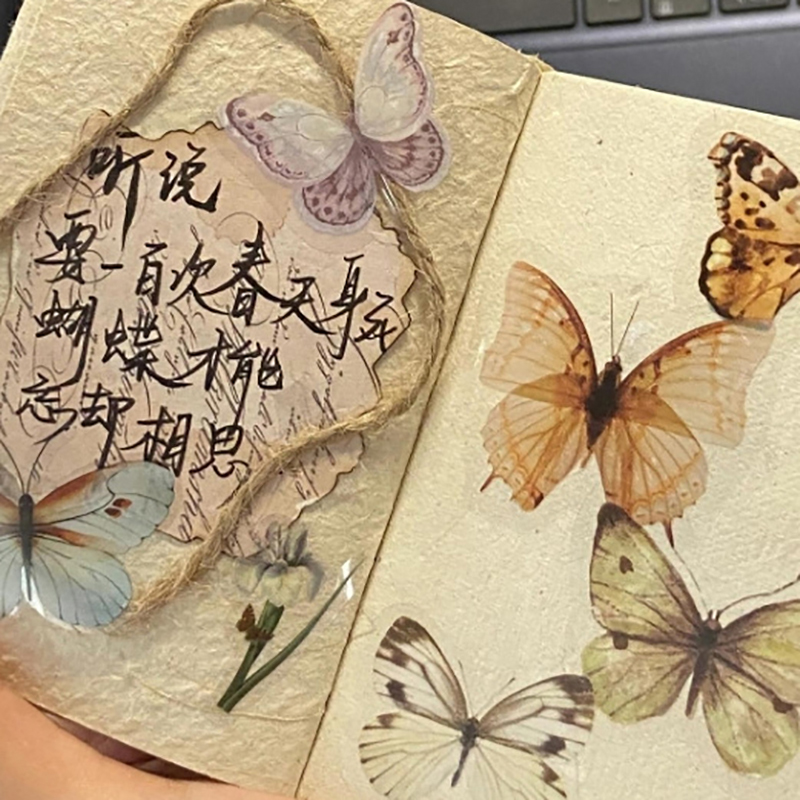 听说
要一百次春天身死
蝴蝶才能
忘却相思